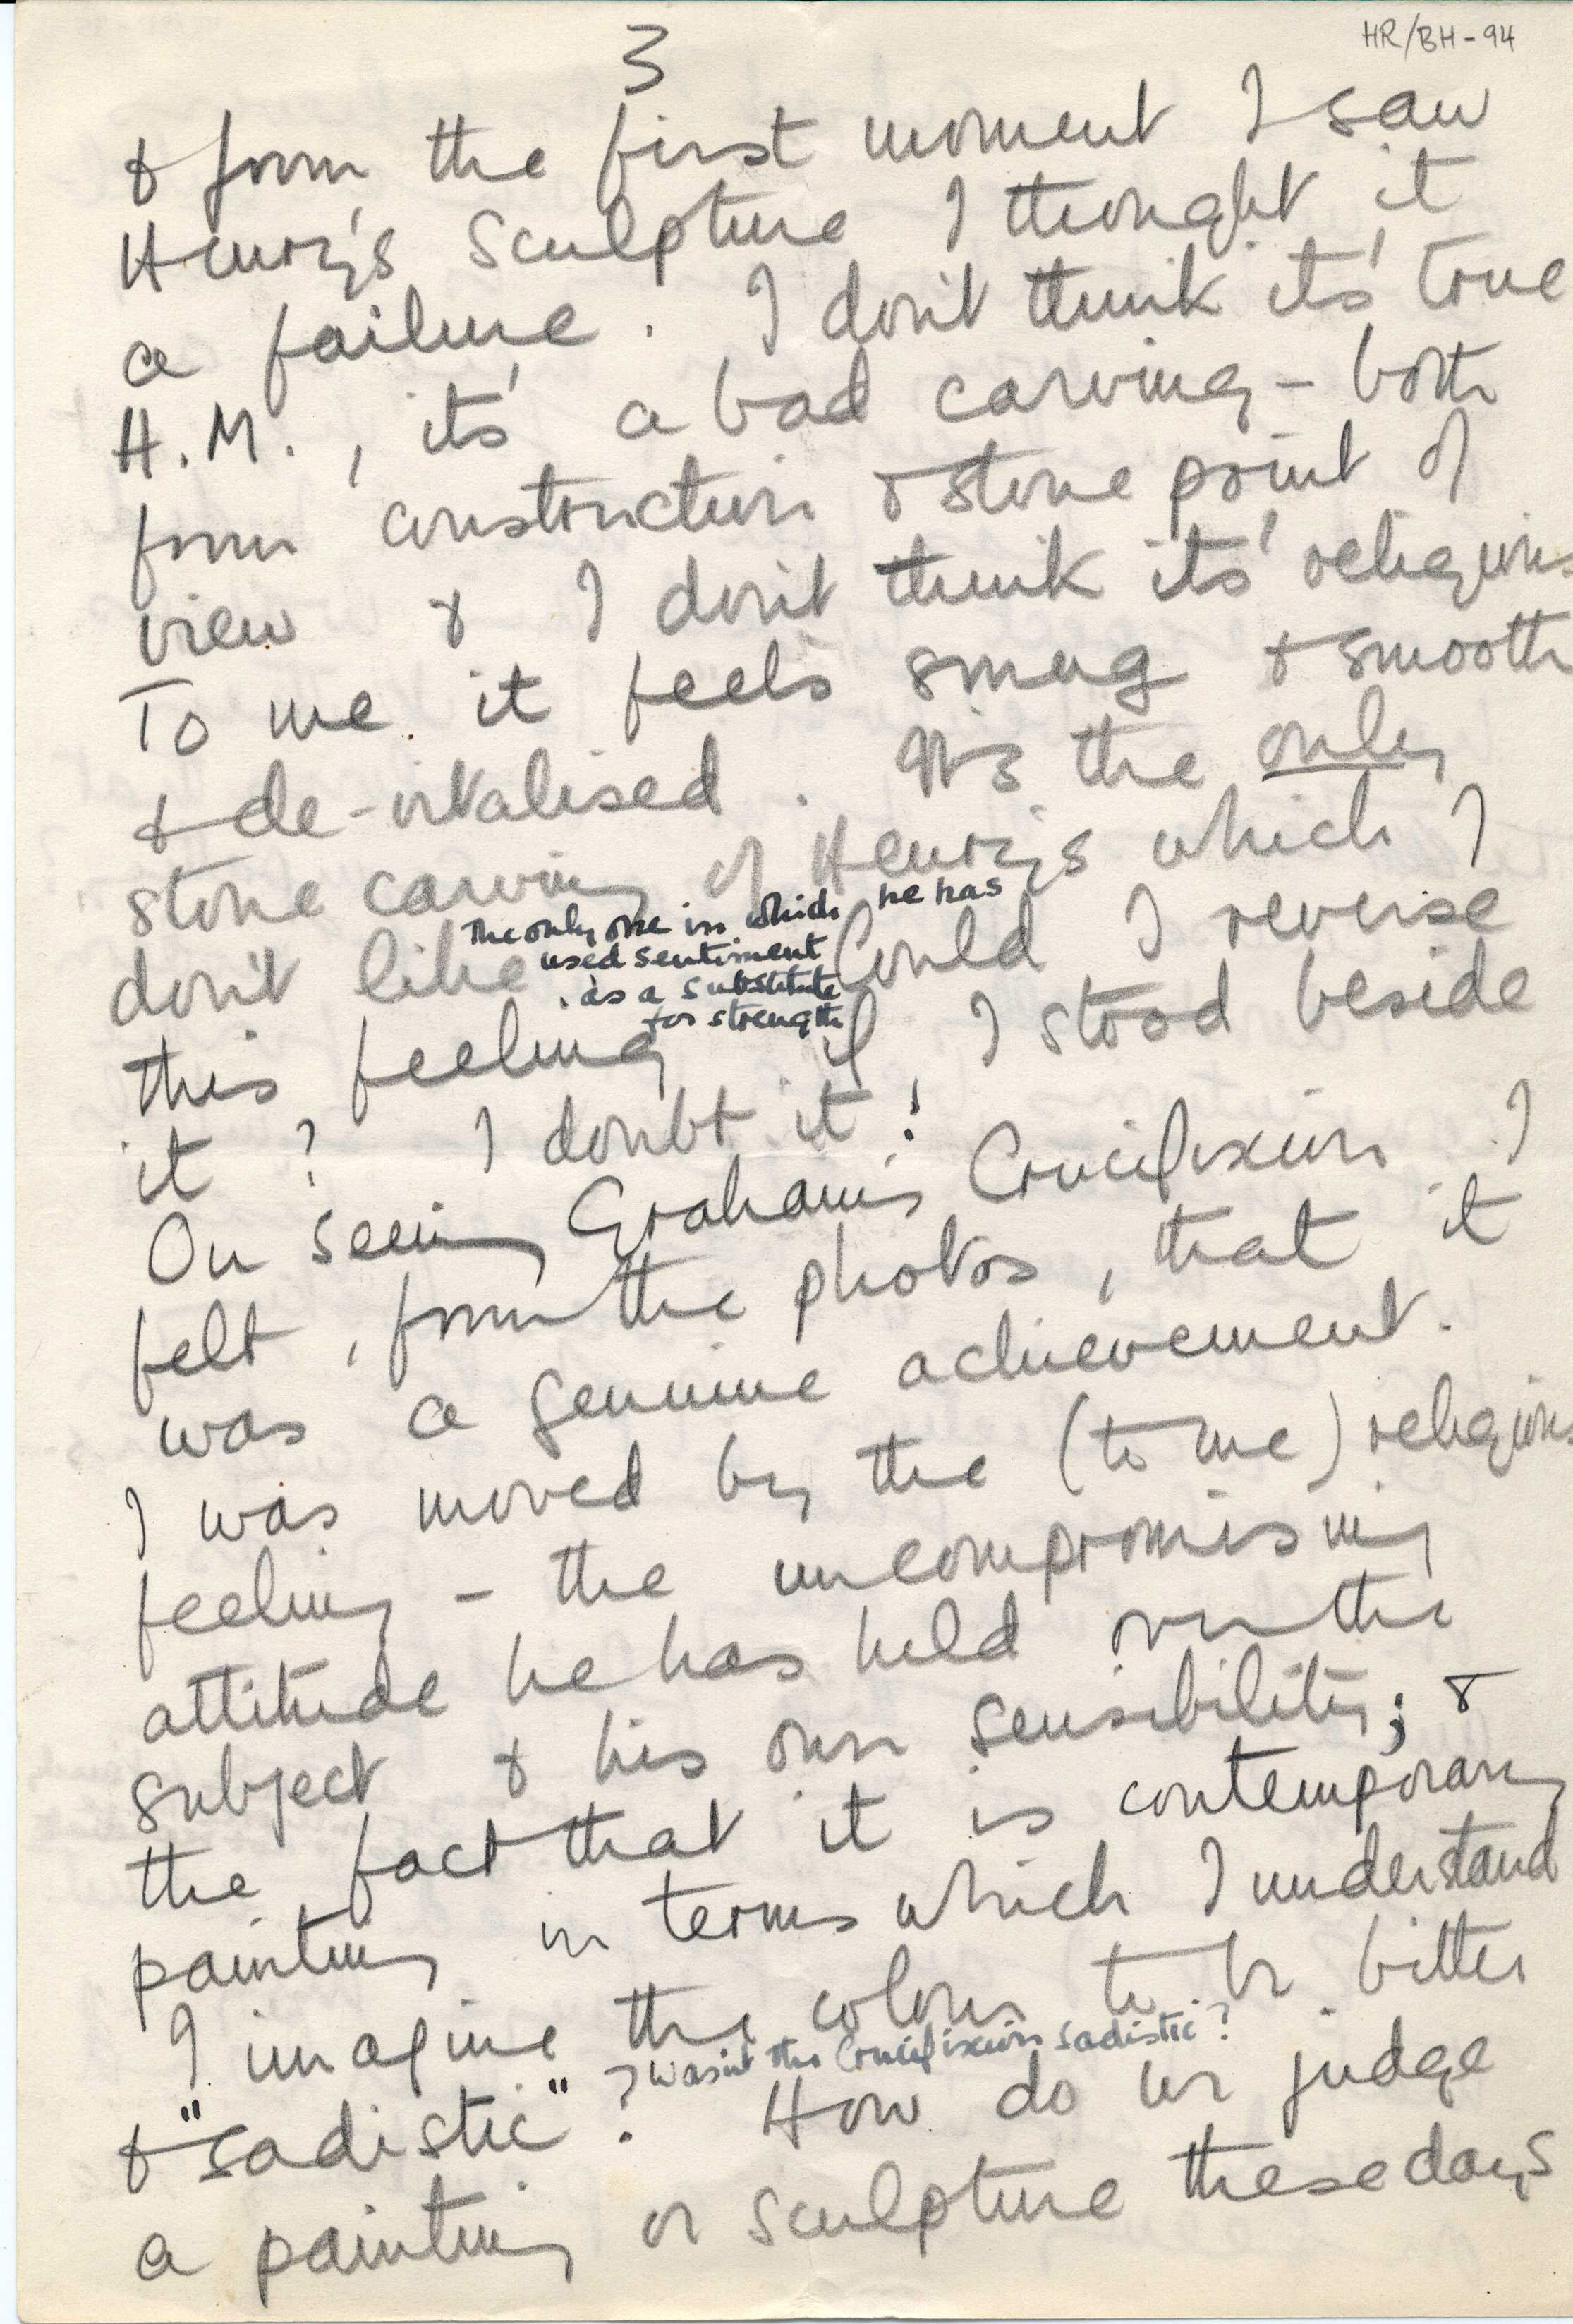 3
HR/BH-94
& from the first moment I saw
Henry's Sculpture I thought it
a failure. I don't think its' true
H.M., its' a bad carving – both
from construction & stone point of
view & I don't think its' religious
To me it feels smug & smooth
& de-vitalised. It's the only
stone carving of Henry's which I
The only one in which he has
used sentiment
as a substitute
for strength
don't like Could I reverse
this feeling if I stood beside
it? I doubt it!
On seeing Graham's Crucifixion I
felt, from the photos, that it
was a genuine achievement.
I was moved by the (to me) religious
feeling – the uncompromising
attitude he has held over the
subject & his own sensibility; &
the fact that it is contemporary
painting in terms which I understand
I imagine the colour to be bitter
? Wasn't the Crucifixion sadistic?
& "sadistic"? How do we judge
a painting or sculpture these days